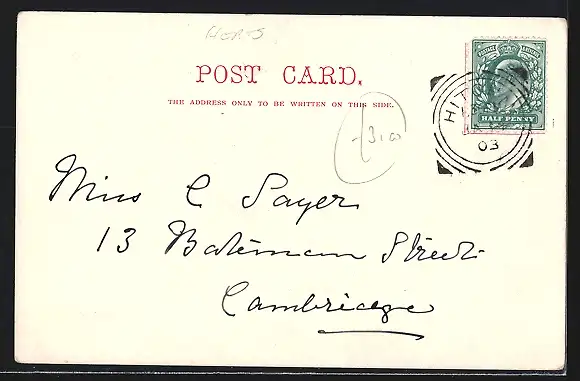 HERTS
POST CARD.
THE ADDRESS ONLY TO BE WRITTEN ON THIS SIDE.
HALF PENNY
03
3.00
Miss C Sayer
13 Bateman Street
Cambridge